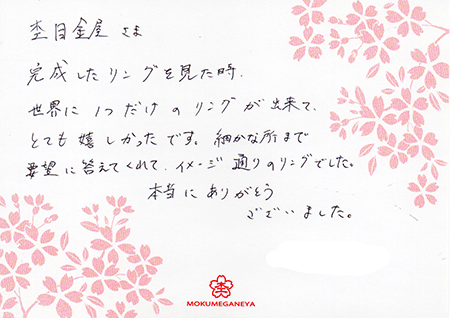 杢目金屋 さま
完成したリングを見た時、
世界に1つだけのリングが出来て、
とても嬉しかったです。細かな所まで
要望に答えてくれて、イメージ通りのリングでした。
本当にありがとう
ございました。
MOKUMEGANEYA